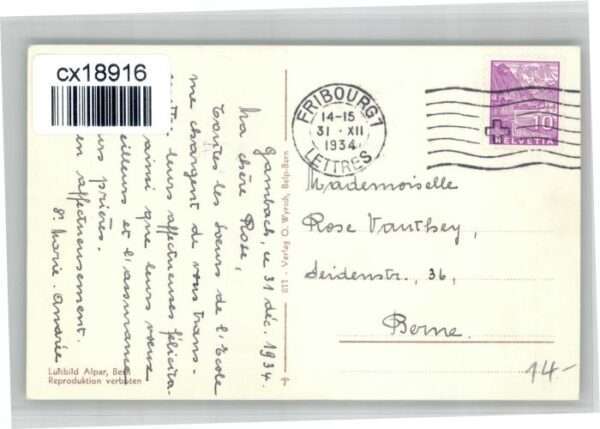 cx18916
FRIBOURG 1
14-15
31·XII
1934
LETTRES
10
HELVETIA
Gambach, le 31 déc. 1934.
Ma chère Rose,
Toutes les Sœurs de l'Ecole
me chargent de vous trans-
leurs affectueuses félicita-
ainsi que leurs voeux
eilleurs et l'assurance
urs prières.
en affectueusement.
Sr Marie-Andrée
Mademoiselle
Rose Vauthey,
Seidenstr., 36,
Berne.
Luftbild Alpar, Bern
Reproduktion verboten
Verlag O. Wyrsch,
14.-